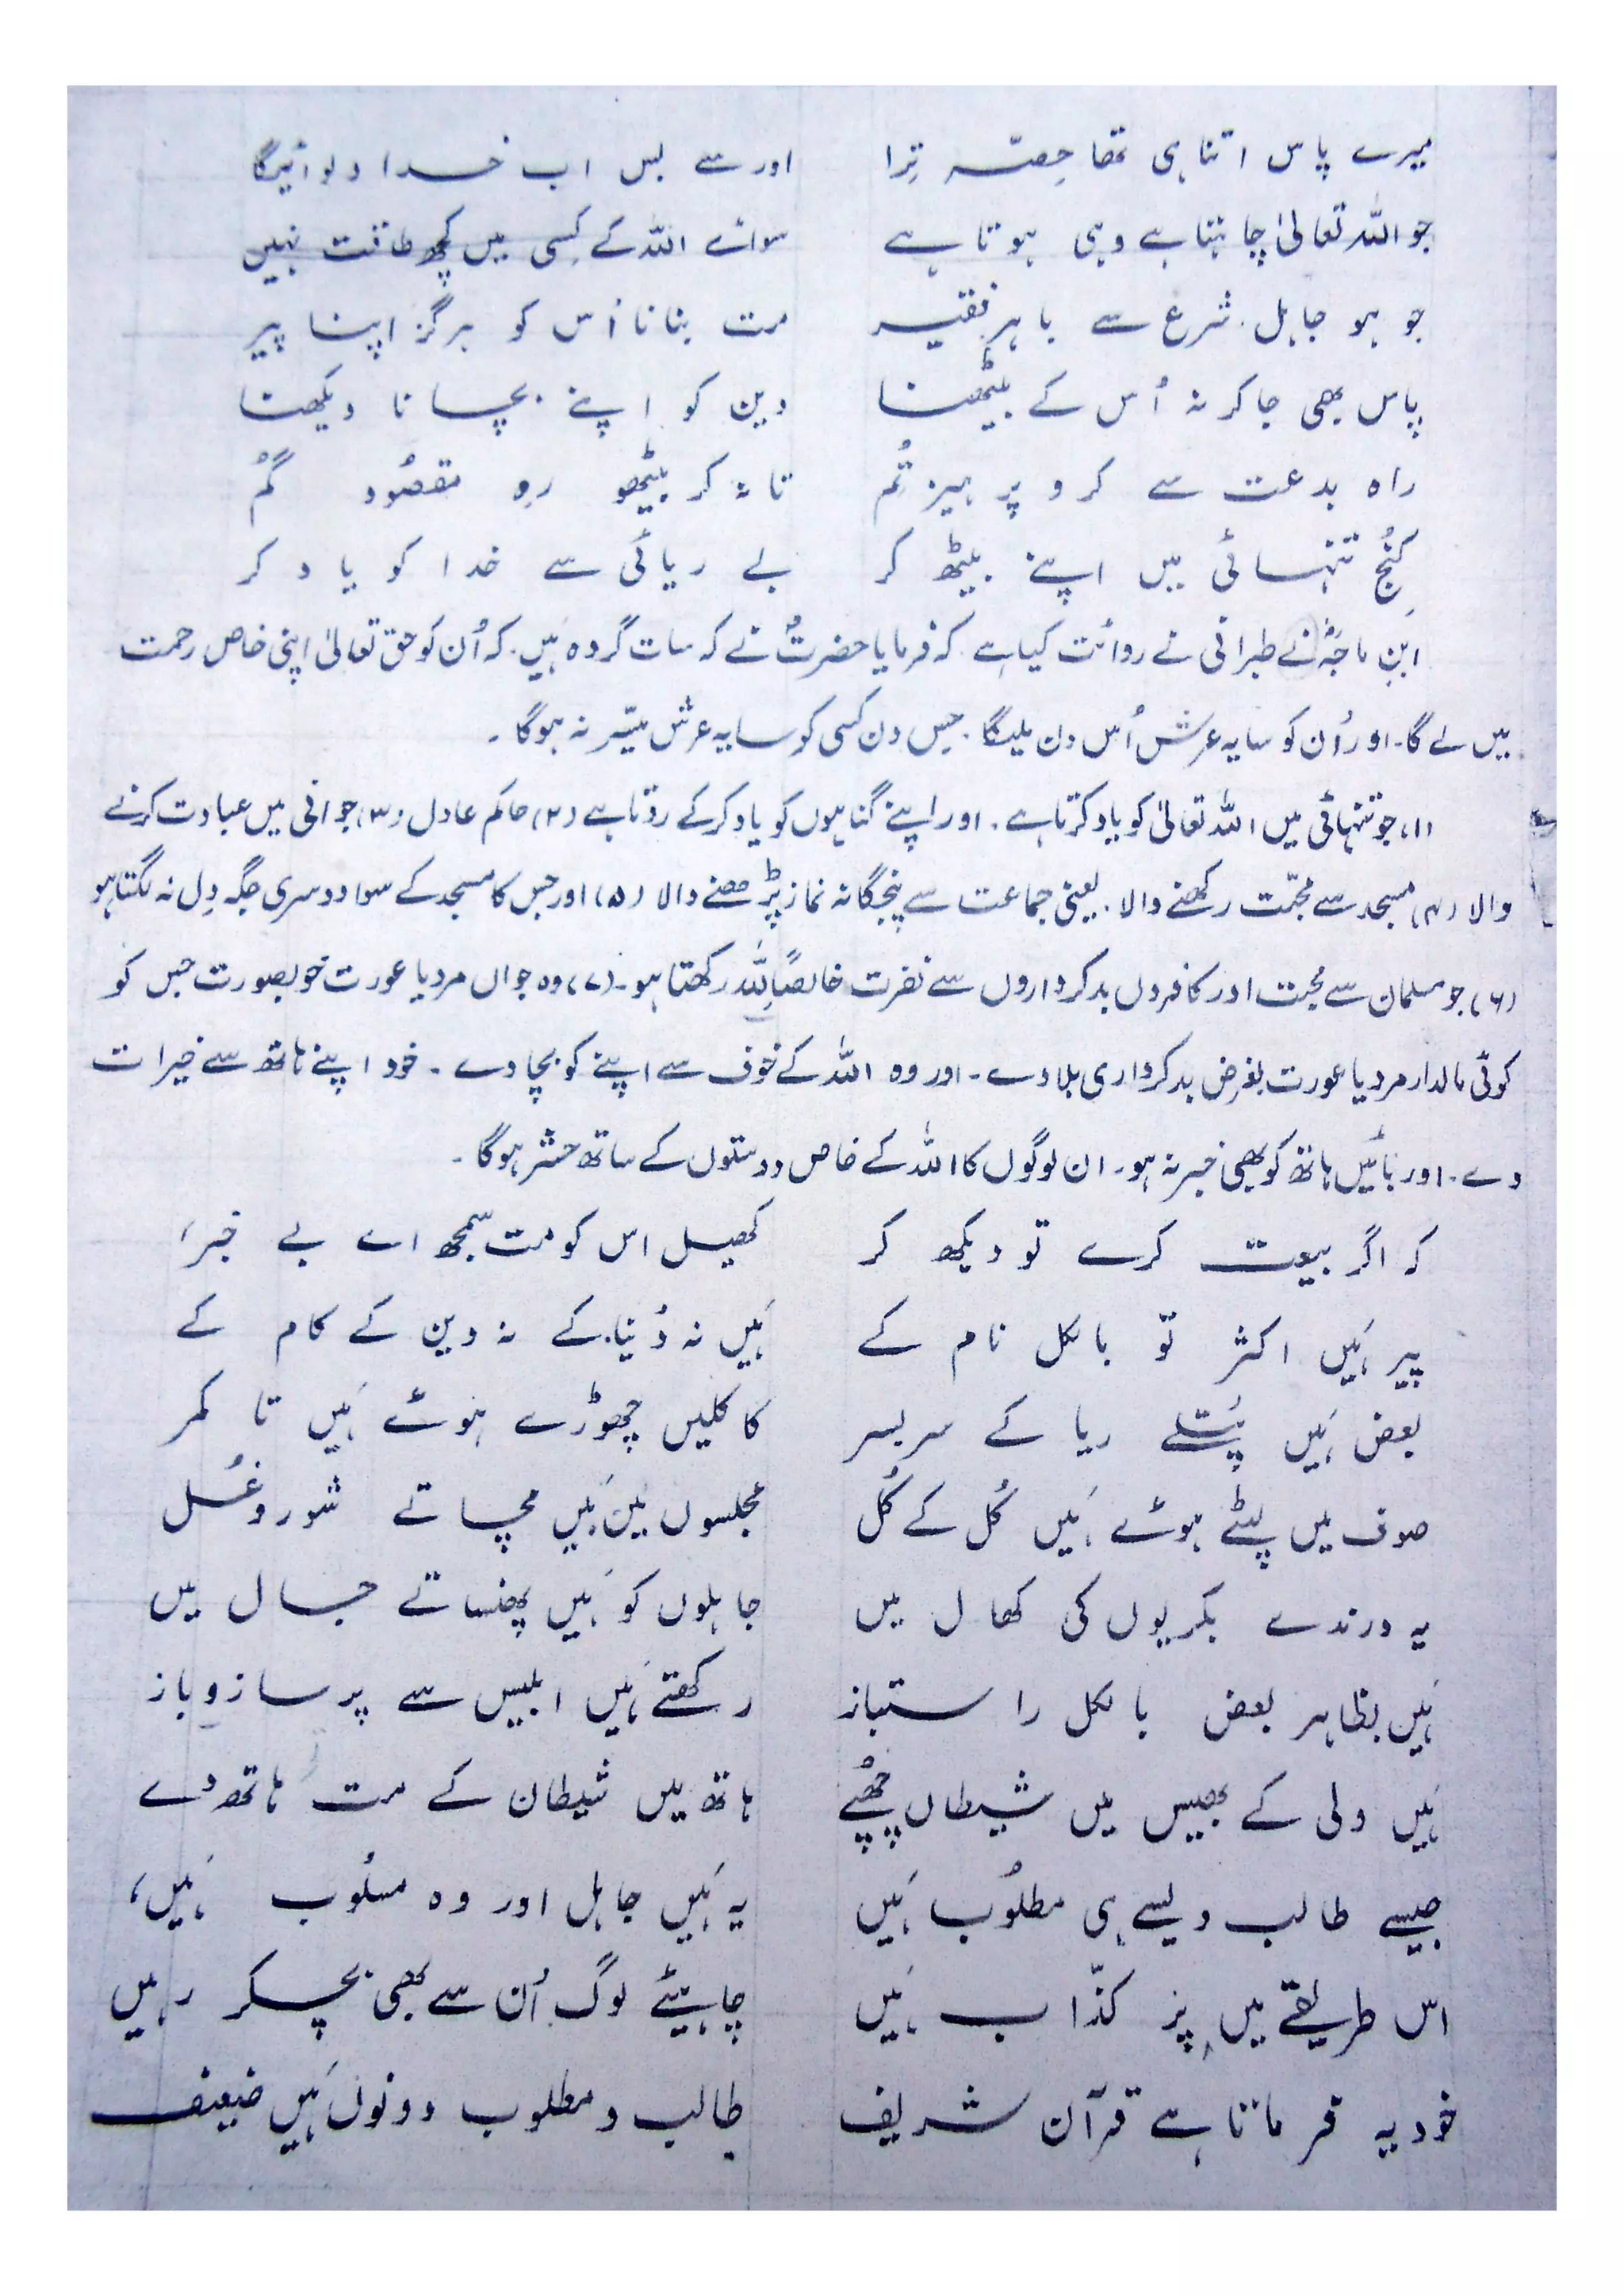 میرے پاس اتنا ہی تھا حِصّہ تِرا    اور سے بس اب خدا دلوائیگا
جو اللہ تعالیٰ چاہتا ہے وہی ہوتا ہے    سوائے اللہ کے کِسی میں کچھ طاقت نہیں
جو ہو جاہل۔ شرع سے باہر فقیر    مت بنانا اُس کو ہرگز اپنا پیر
پاس بھی جا کر نہ اُس کے بیٹھنا    دین کو اپنے بچانا دیکھنا
راہ بدعت سے کرو پرہیز تُم    تا نہ کر بیٹھو رہِ مقصُود گُم
کُنجِ تنہائی میں اپنے بیٹھ کر    بے ریائی سے خدا کو یاد کر
اِبنِ ماجَہؒ نے طبرانی نے روائت کیا ہے کہ فرمایا حضرتؐ نے کہ سات گروہ ہَیں۔ کہ اُن کو حق تعالیٰ اپنی خاص رحمت
میں لے گا۔ اور اُن کو سایہ عرش اُس دن ملیگا۔ جس دن کسی کو سایہ عرش میّسر نہ ہوگا۔
(۱) جو تنہائی میں اللہ تعالیٰ کو یاد کرتا ہے۔ اور اپنے گناہوں کو یاد کر کے روتا ہے (۲) حاکم عادل (۳) جوانی میں عبادت کرنے
والا (۴) مسجد سے محبّت رکھنے والا۔ یعنی جماعت سے پنجگانہ نماز پڑھنے والا (۵) اور جس کا مسجد کے سوا دوسری جگہ دِل نہ لگتا ہو
(۶) جو مسلمان سے محبت اور کافروں بدکرداروں سے نفرت خالصًا لِلّٰہ رکھتا ہو۔ (۷) وہ جوان مرد یا عورت خوبصورت جس کو
کوئی مالدار مرد یا عورت بغرضِ بدکرداری بلا دے۔ اور وہ اللہ کے خوف سے اپنے کو بچا دے۔ خود اپنے ہاتھ سے خیرات
دے۔ اور بائیں ہاتھ کو بھی خبر نہ ہو۔ ان لوگوں کا اللہ کے خاص دوستوں کے ساتھ حشر ہوگا۔
کہ اگر بیعت کرے تو دیکھ کر    کھیل اس کو مت سمجھ اے بے خبر،
پیر ہَیں اکثر تو بالکل نام کے    ہَیں نہ دُنیا کے نہ دین کے کام کے
بعض ہَیں پُتلے ریا کے سربسر    کاکلیں چھوڑے ہوئے ہَیں تا کمر
صوف میں لپٹے ہوئے ہَیں کُل کے کُل    مجلسوں میں ہَیں مچاتے شور و غُل
یہ درندے بکریوں کی کھال میں    جاہلوں کو ہَیں پھنساتے جال میں
ہَیں بظاہر بعض بالکل راستباز    رکھتے ہَیں ابلیس سے پر ساز و باز
ہَیں ولی کے بھیس میں شیطاں چھُپے    ہاتھ میں شیطان کے مت ہاتھ دے
جیسے طالب ویسے ہی مطلُوب ہَیں    یہ ہَیں جاہل اور وہ مسلُوب ہَیں،
اس طریقے میں پر کذّاب ہَیں    چاہیئے لوگ اُن سے بھی بچکر رہیں
خود یہ فرماتا ہے قرآن شریف    طالب و مطلوب دونوں ہَیں ضعیف